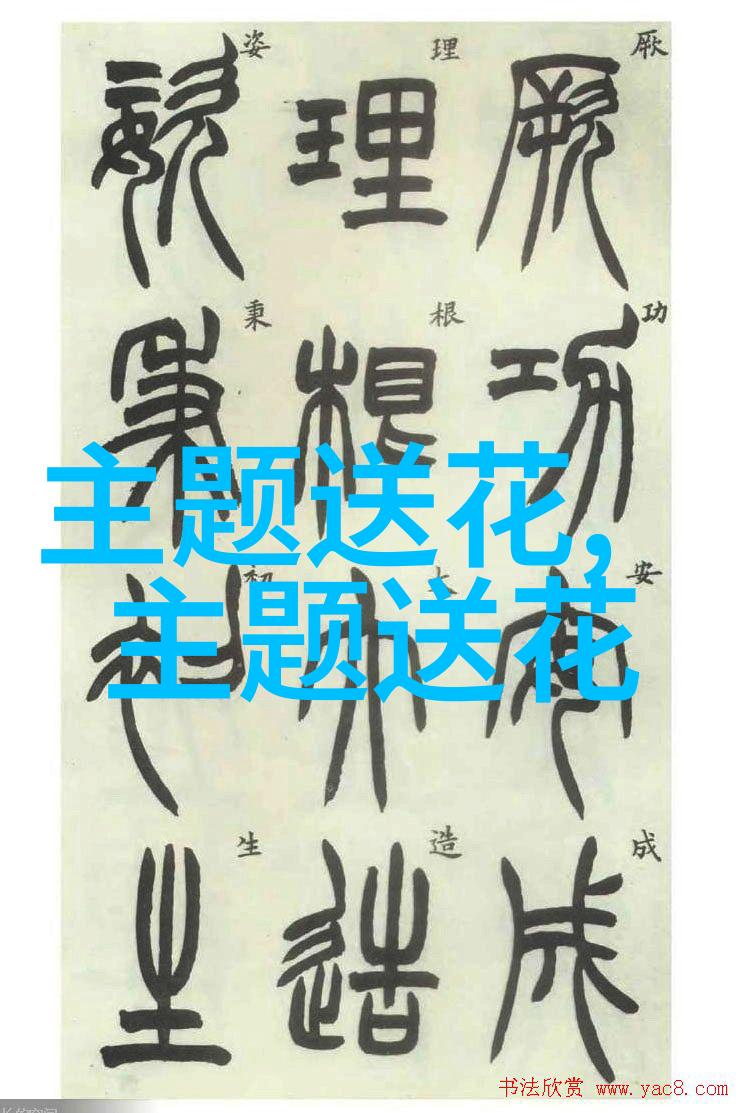 厥
功
安
成
理
根
大
造
姿
秉
初
生
主题送花,
主题送花
书法欣赏 www.yac8.com